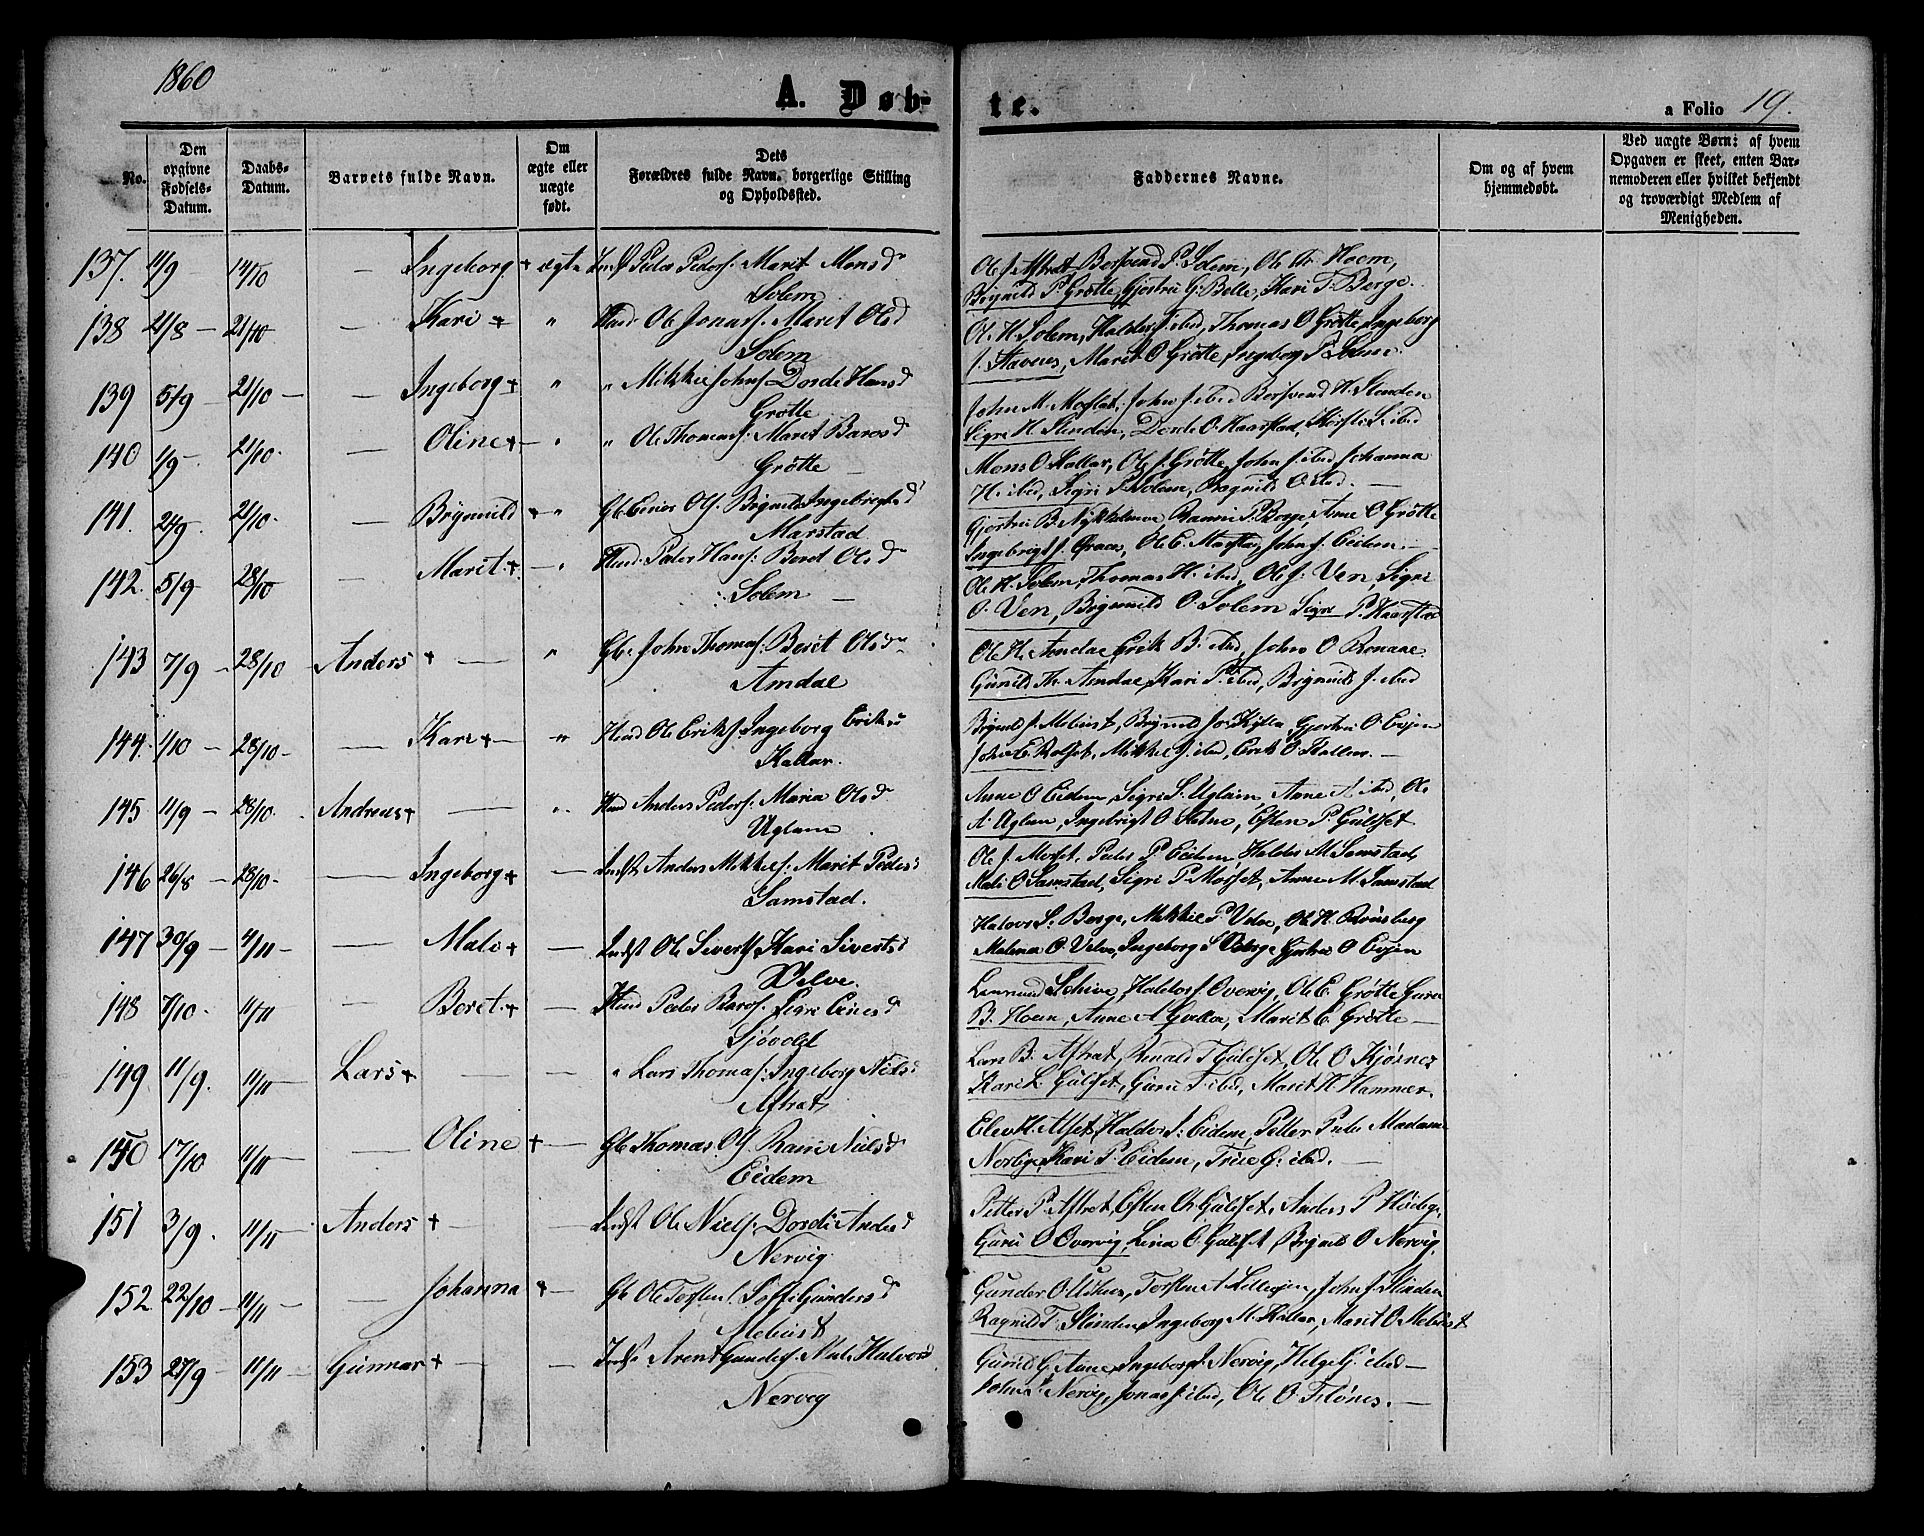 1860
A. Døb-
te.
a Folio 19.
No.
Den opgivne Fødsels-Datum.
Daabs-Datum.
Barnets fulde Navn.
Om ægte eller uægte født.
Dets Forældres fulde Navn, borgerlige Stilling og Opholdssted.
Faddernes Navne.
Om og af hvem hjemmedøbt.
Ved uægte Børn: af hvem Opgaven er skeet, enten Barnemoderen eller hvilket bekjendt og troværdigt Medlem af Menigheden.
137. 11/9 14/10 — Ingeborg + ægte Peder Peders. Marit Monsd
Solem
Ole J. Aftrat Bersvend P. Solem, Ole Hoem,
Brynild P. Grøtte, Gjertru G. Bolle, Kari T. Berge.
138 21/8 — 21/10 — Kari + " Ole Jonas. Marit Olsd
Solem
Ole H. Solem, Haldor J. ibid, Thomas O Grøtte, Ingeborg
J. Stavenes, Marit O Grøtte, Ingeborg P. Solem.
139 5/9 — 21/10 — — Ingeborg + " " Mikkel Johns. Dordi Hansd
Grøtte
John M. Moslet, John J. ibid Bersvend H. Slinden
Sigri H. Slinden, Dordi O. Haarstad, ibid
140 1/9 — 21/10 — Oline + — " " Ole Thomas. Marit Baros d
Grøtte —
Mons O. Kallar, Ole J. Grøtte, John J. ibid Johanna
H. ibid, Sigri P. Solem, Ragnild O. ibid. —
141. 21/10 — Brynild + — " Gb Einer Ols. Brynild Ingebrigtsd
Marstad
Gjertru B. Nykkelmoe, Ranni P. Berge, Anne O Grøtte
Ingebrigt J. Graae, Ole E. Marstad, John J. Eidem. —
142. 5/9 — 28/10 — Marit. + — " Peder Hans. Beret Olsd
Solem —
Ole H. Solem, Thomas H. ibid, Ole J. Ven, Sigri
O. Ven, Brynild O. Solem Sigri P. Haarstad
143 7/9 — 28/10 — Anders + — " Gb. John Thomas. Beret Olsd
Amdal
Ole H. Amdae, Erik B. ibid, John O Renaae
Gunild Th. Amdae, Kari P. ibid, Brynild J. ibid
144. 1/10 — 28/10 — — Kari + — " Ole Eriks. Ingeborg Eriksd
Kallar.
Brynild J. Mebust, Brynild Kylla, Gjertru O Evjen
John E. Rolset, Mikkel J. ibid, Erik O. Kallar. —
145 11/9 — 28/10. Andreas + — " Anders Peders. Maria Olsd
Uglem
Anne O Eidem, Sigri S. Uglem Anne A. ibid, Ole
A. Uglem, Ingebrigt O Selnæ, Esten P. Gulset
146 26/8 — 28/10 — — Ingeborg + — Indst Anders Mikkels. Marit Peders d
Samstad.
Ole J. Morset, Peder P. Eidem, Haldor M Samstad,
Mali O Samstad, Sigri P. Morset, Anne M. Samstad
147 30/9 — 4/11 — — Mali + — Indst Ole Siverts. Kari Siverts d
Velve.
Halvor S. Berge, Mikkel P. Velve, Ole H. Rønsberg
Malena O. Velve, Ingeborg S. Berge Gjertru O Evjen
148 7/10 — 11/11 — Beret. + — Peder Baros. Sigri Einers d
Sjøvold
Schive, Haldor J. Overvig, Ole E. Grøtte Guru
B. Hoem, Anne A. Marit E. Grøtte —
149. 11/9. 11/11 — Lars + — — " Lars Thomas. Ingeborg Nils d
Aftrat
Lars B. Aftrat, Renald T. Gulset, Ole O Kjøsnes
Kari L. Gulset, Guru T. ibid, Marit H. Hammer.
150 17/10 11/11 — Oline + — Gb Thomas Ols. Rani Nilsd
Eidem
Elev H. Alset, Haldor J. Eidem, Petter Madame
Norlige, Kari P. Eidem, G. ibid. —
151 3/9. 11/11 Anders + — — Indst Ole Niels. Dordi Anders d
Nervig
Petter P. Aftrat, Esten O. Gulset, Anders P Høiby,
Guru O Overvig, O. Gulset, Brynild O Nervig,
152 22/10 — 11/11 — — Johanna + — Gb Ole Torsten. Siffi Gunders d
Mebust
Gunder O Torsten A. John J. Slinden
Ragnild T. Slinden, Ingeborg M. Kallar, Marit O Mebust
153 27/9 — 11/11 — Gunnar + — — Indst Arent Gunders. Mali Halvors d
Nervig
Gunild G. Aune, Ingeborg J. Nervig, Helge G. ibid —
John P. Nervig, Jonas J. ibid, Ole O. Flønes. —